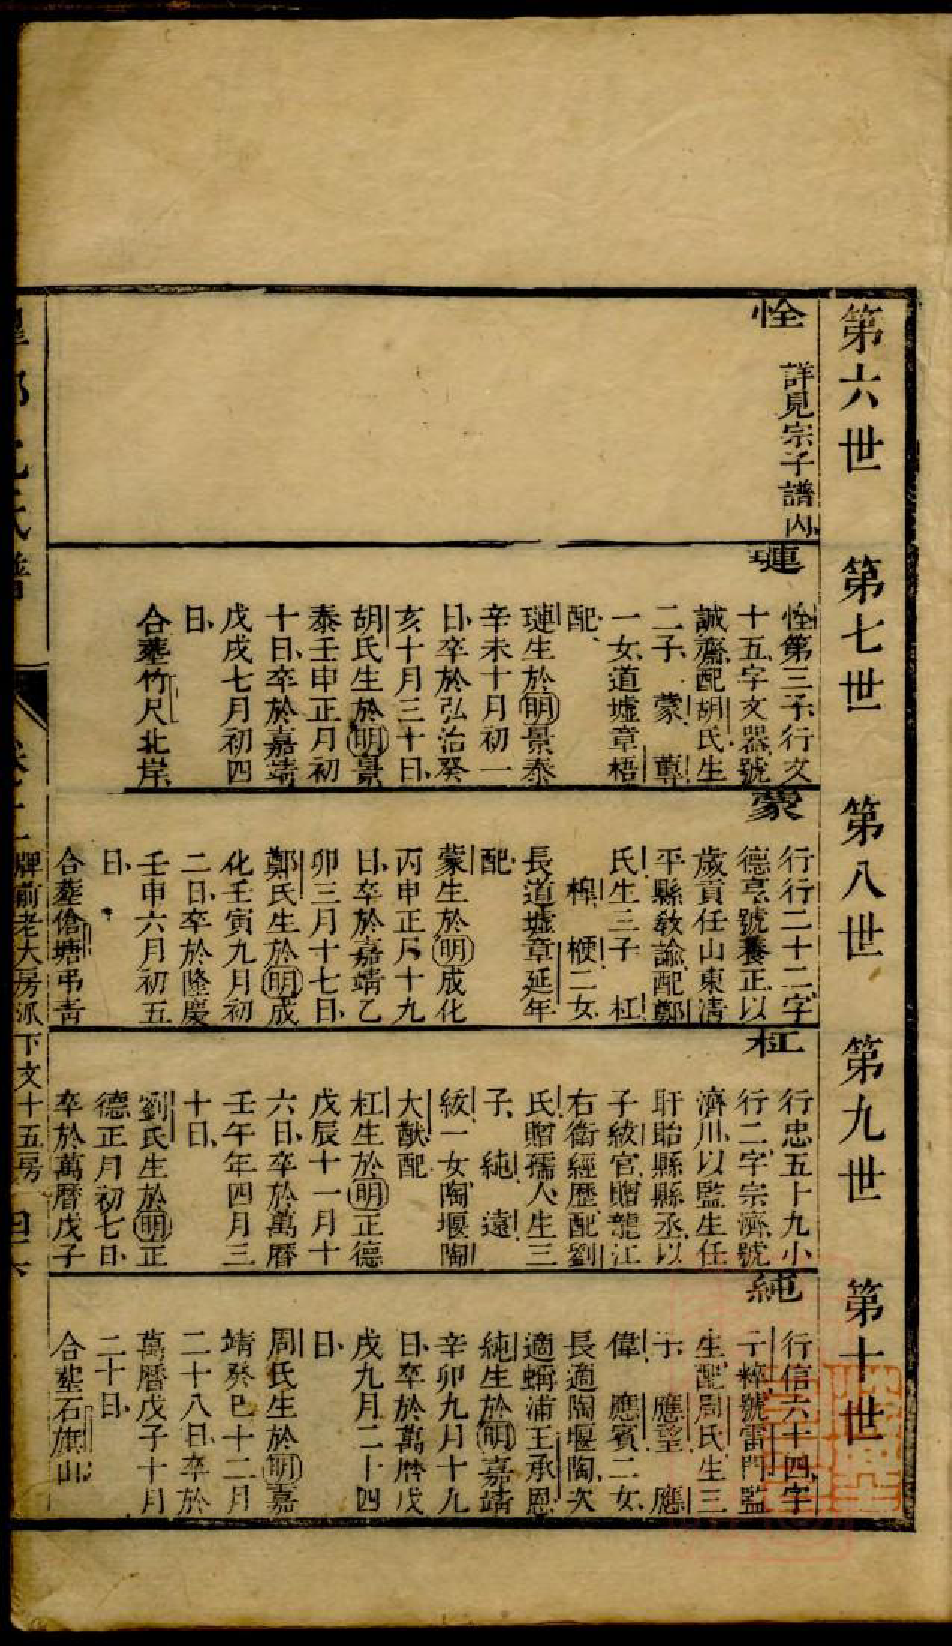 第六世
第七世
第八世
第九世
第十世
恮
詳見宗子譜內
璭
恮第三子行文
十五字文器號
誠齋配胡氏生
二子 蒙
一女道墟章梧
配
璭生於明景泰
辛未十月初一
日卒於弘治癸
亥十月三十日
胡氏生於明景
泰壬申正月初
十日卒於嘉靖
戊戌七月初四
日
合塟竹尺北岸
蒙
行行二十二字
德亨號養正以
歲貢任山東清
平縣教諭配鄭
氏生三子 杠
楻 梗二女
長道墟章延年
配
蒙生於明成化
丙申正月十九
日卒於嘉靖乙
卯三月十七日
鄭氏生於明成
化壬寅九月初
二日卒於隆慶
壬申六月初五
日
合塟傖塘弔青
杠
行忠五十九小
行二字宗濟號
濟川以監生任
盱眙縣縣丞以
子紱官贈龍江
右衛經歷配劉
氏贈孺人生三
子 純 遠
紱一女陶堰陶
大猷配
杠生於明正德
戊辰十一月十
六日卒於萬曆
壬午年四月三
十日
劉氏生於明正
德正月初七日
卒於萬曆戊子
純
行信六十四字
子粹號雷門監
生配周氏生三
子 應望 應
偉 應賓二女
長適陶堰陶次
適蟵浦王承恩
純生於明嘉靖
辛卯九月十九
日卒於萬曆戊
戌九月二十四
日
周氏生於明嘉
靖癸巳十二月
二十八日卒於
萬曆戊子十月
二十日
合塟石旗山
牌前老大房派
下文十五房